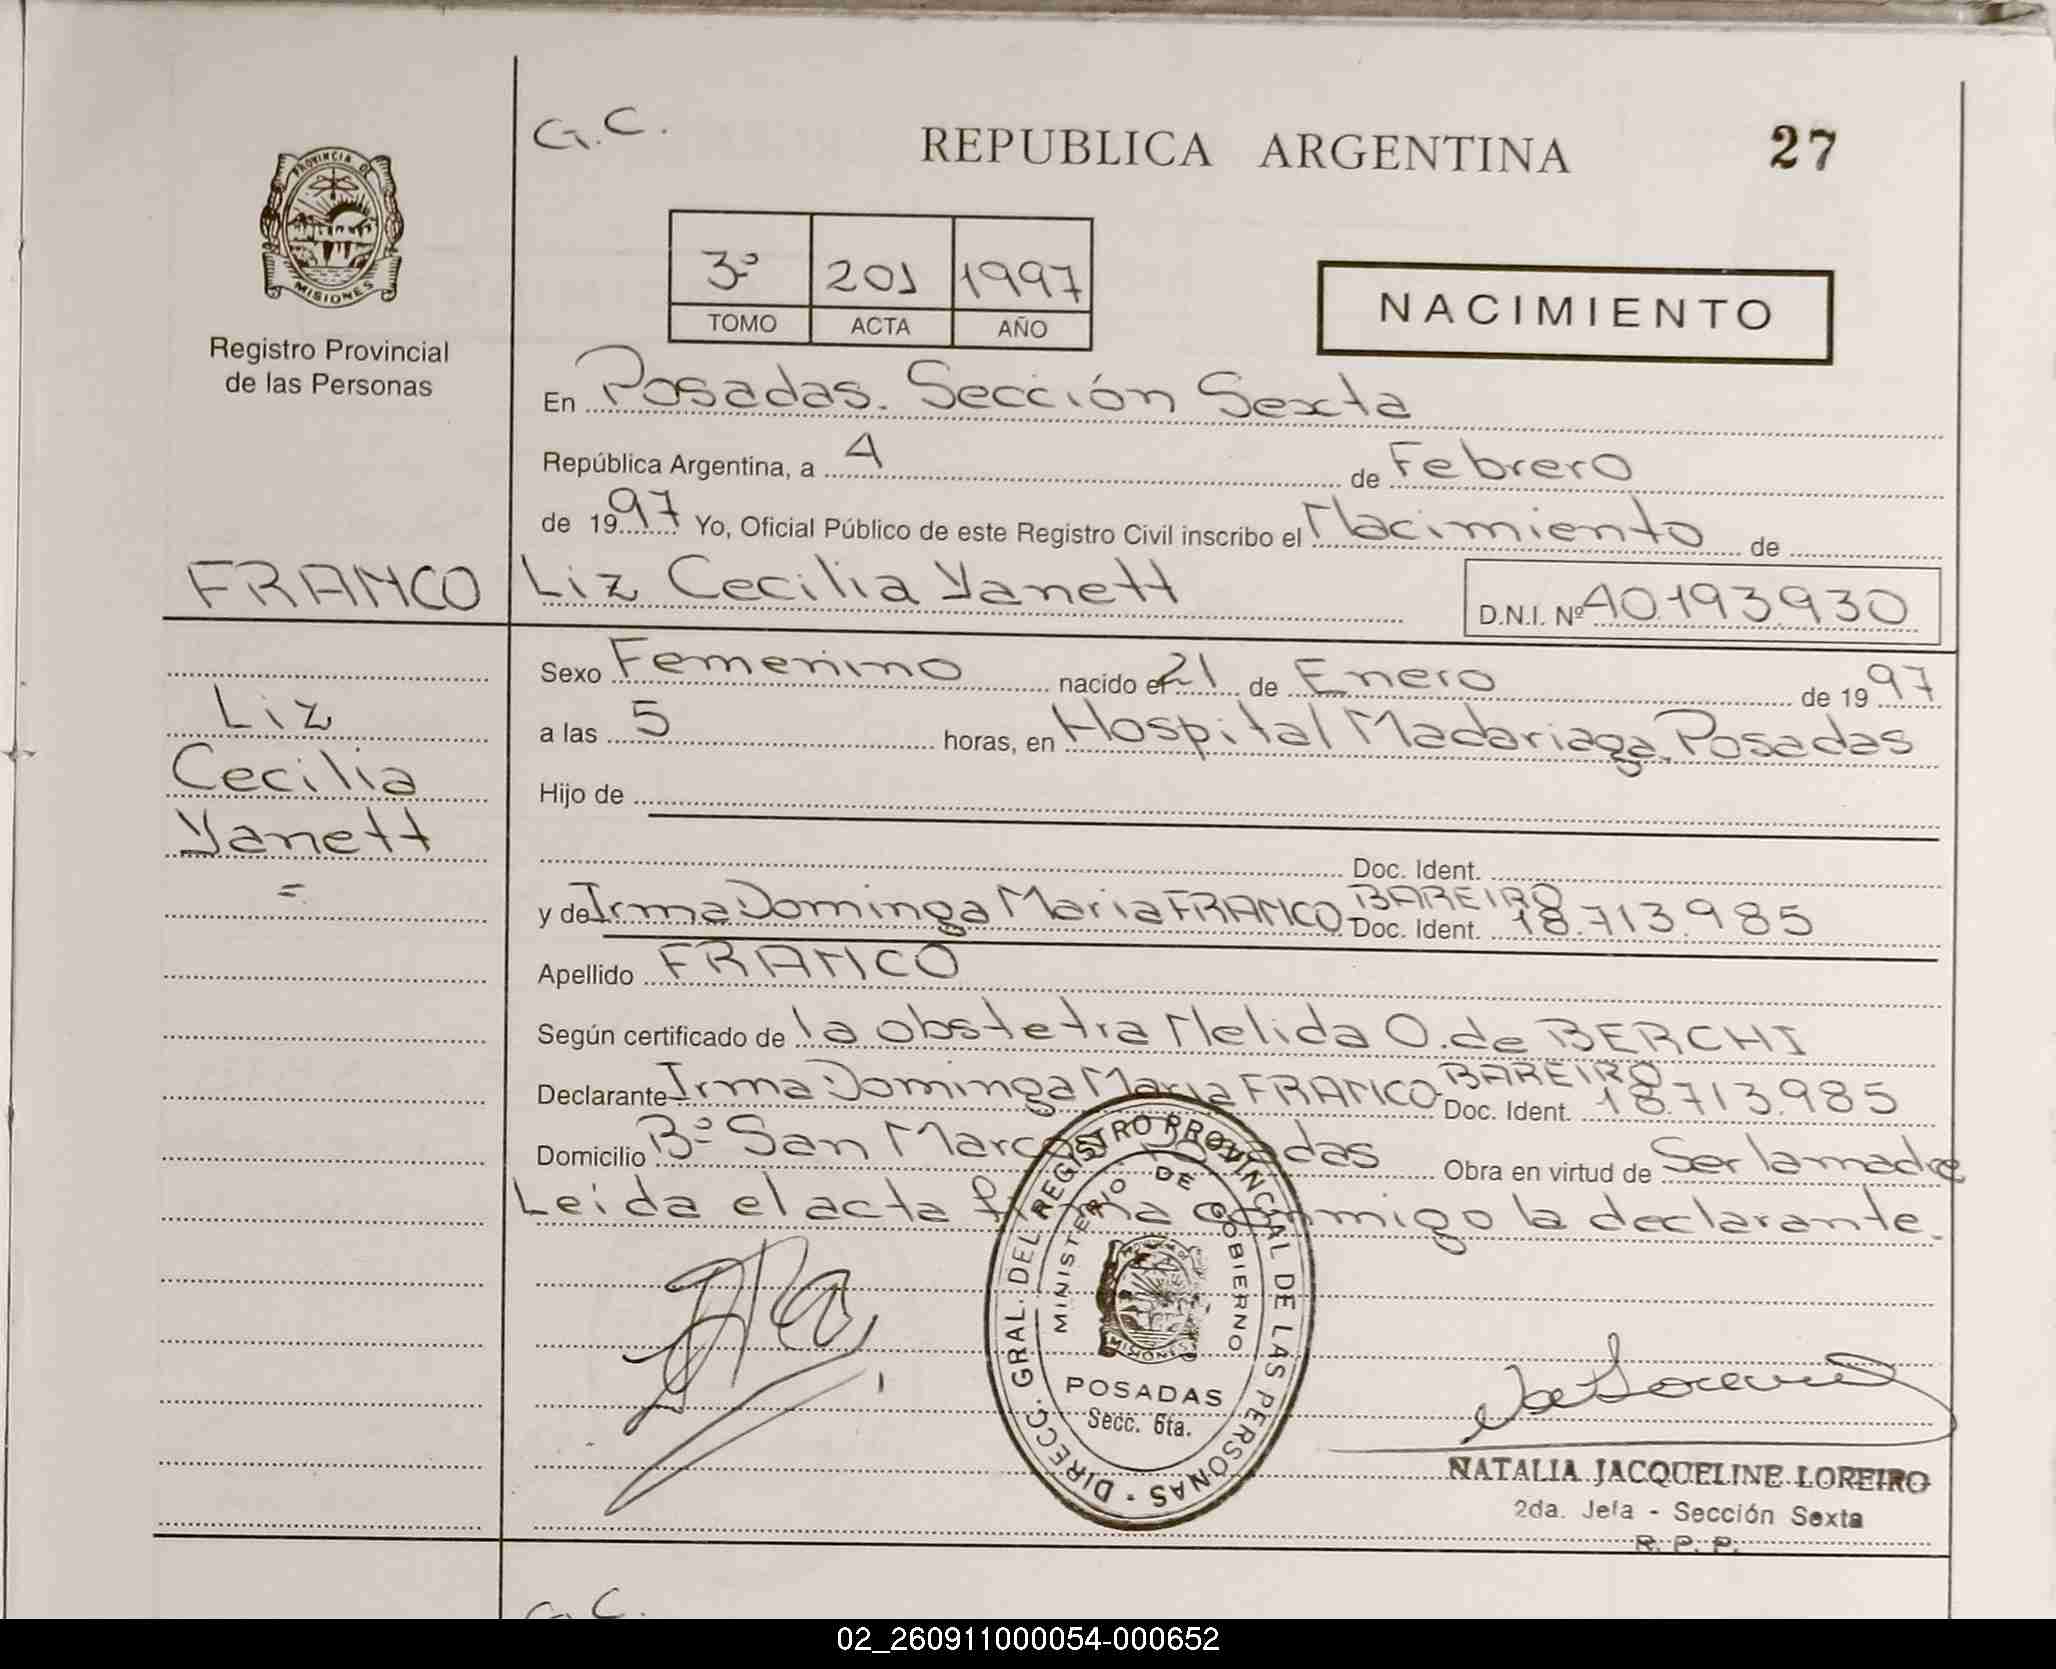 G.C.
REPUBLICA ARGENTINA
27
PROVINCIA DE
MISIONES
Registro Provincial
de las Personas
3º 201 1997
TOMO ACTA AÑO
NACIMIENTO
En Posadas. Sección Sexta
República Argentina, a 4 de Febrero
de 1997 Yo, Oficial Público de este Registro Civil inscribo el Nacimiento de
FRANCO Liz Cecilia Yanett D.N.I. Nº 40.193.930
Sexo Femenino nacido el 21 de Enero de 1997
Liz
Cecilia
Yanett
=
a las 5 horas, en Hospital Madariaga. Posadas
Hijo de
Doc. Ident.
y de Irma Dominga Maria FRANCO BAREIRO Doc. Ident. 18.713.985
Apellido FRANCO
Según certificado de la obstetra Nelida O. de BERCHI
Declarante Irma Dominga Maria FRANCO BAREIRO Doc. Ident. 18.713.985
Domicilio Bº San Marcos. Posadas Obra en virtud de Ser la madre
Leida el acta firma conmigo la declarante.
DIRECC. GRAL. DEL REGISTRO PROVINCIAL DE LAS PERSONAS
MINISTERIO DE GOBIERNO
MISIONES
POSADAS
Secc. 6ta.
NATALIA JACQUELINE LOREIRO
2da. Jefa - Sección Sexta
R. P. P.
G.C.
02_260911000054-000652